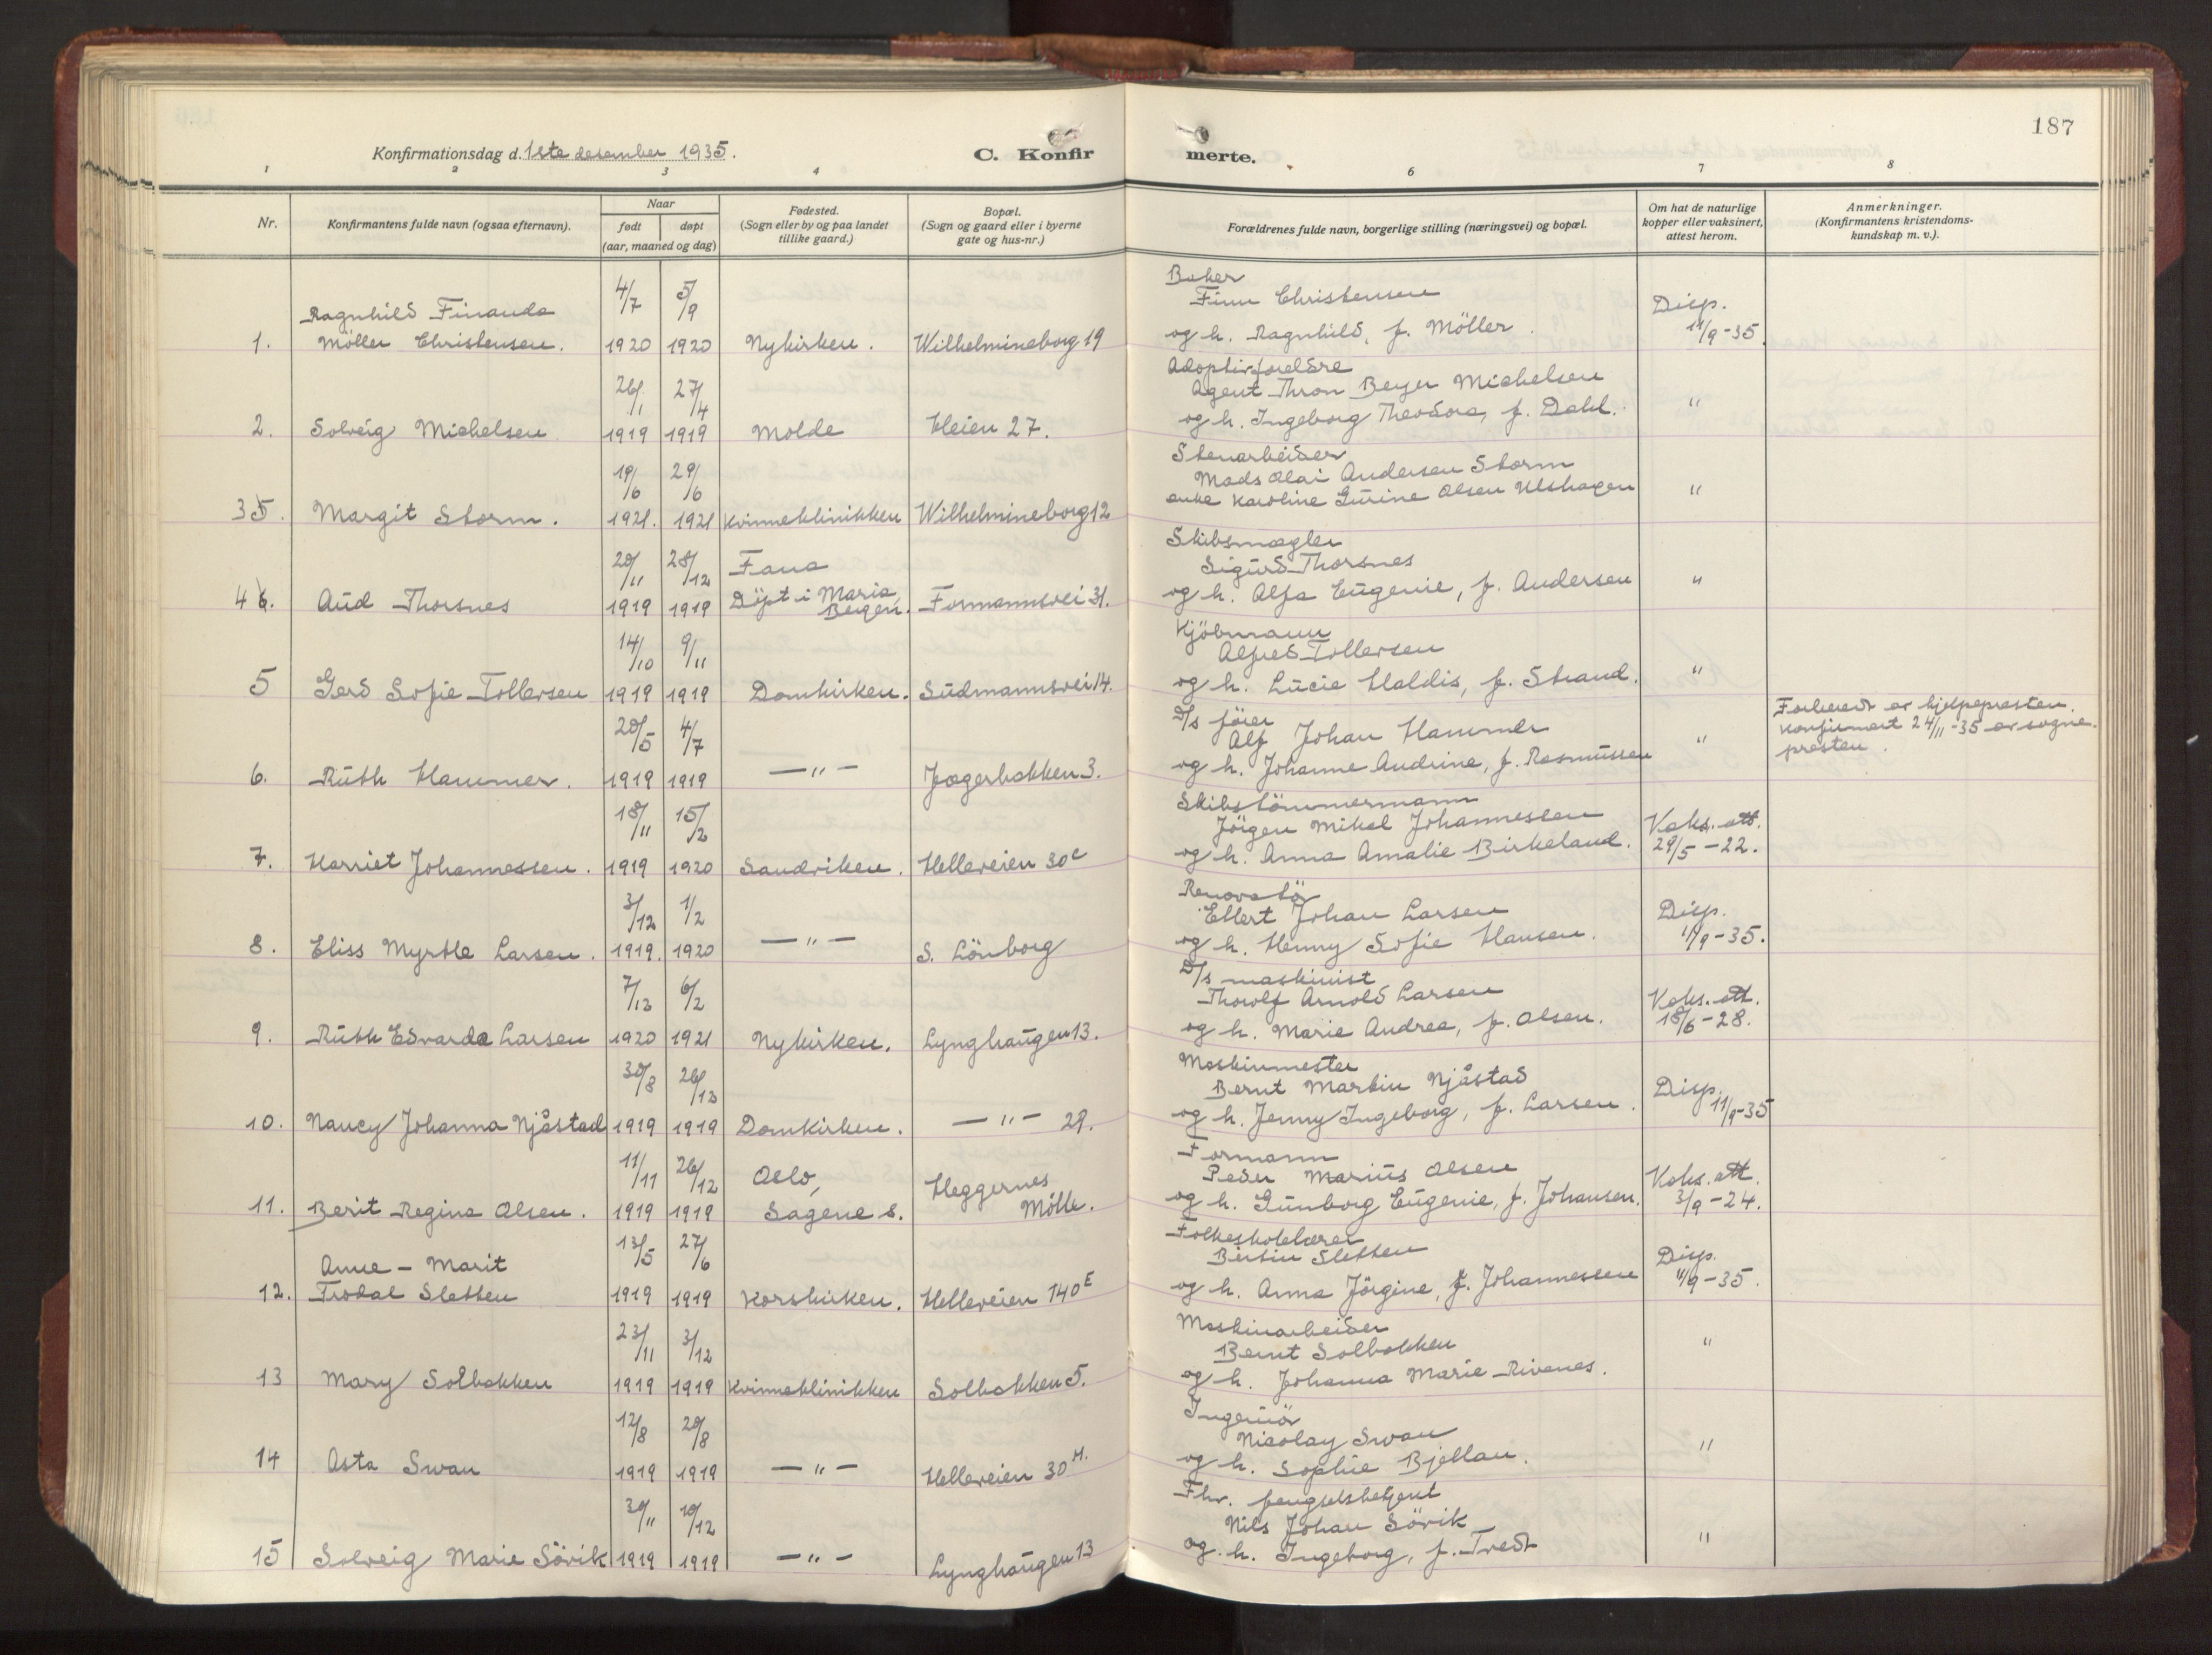 187
Konfirmationsdag d. 1ste desember 1935.
C. Konfirmerte.
1 2 3 4 6 7 8
Nr.
Konfirmantens fulde navn (ogsaa efternavn).
Naar
født døpt
(aar, maaned og dag)
Fødested.
(Sogn eller by og paa landet
tillike gaard.)
Bopæl.
(Sogn og gaard eller i byerne
gate og hus-nr.)
Forældrenes fulde navn, borgerlige stilling (næringsvei) og bopæl.
Om hat de naturlige
kopper eller vaksinert,
attest herom.
Anmerkninger.
(Konfirmantens kristendoms-
kundskap m. v.).
4/7 5/9 Baker
Ragnhild Finanda Finn Christensen Disp.
1. Möller Christensen. 1920 1920 Nykirken. Wilhelmineborg 19 og h. Ragnhild, f. Möller. 11/9-35.
26/1 27/4 Adoptivforeldre
Agent Thron Beyer Michelsen
2. Solveig Michelsen 1919 1919 Molde Heien 27. og h. Ingeborg Theodora, f. Dahl. "
19/6 29/6 Stenarbeider
Mads Olai Andersen Storm
35. Margit Storm. 1921. 1921 Kvinneklinikken Wilhelmineborg 12 enke Karoline Gurine Olsen Ulshagen "
20/11 28/12 Fana Skibsmægler
Döpt i Maria, Sigurd Thorsnes
46. Aud Thorsnes 1919 1919 Bergen. Formannsvei 31. og h. Alfa Eugenie, f. Andersen "
14/10 9/11 Kjöbmann
Alfred Tollersen
5 Gerd Sofie Tollersen 1919 1919 Domkirken. Sudmannsvei 14. og h. Lucie Haldis, f. Strand. "
20/5 4/7 D/s förer
Alf Johan Hammer
6. Ruth Hammer. 1919 1919 —"— Jægerbakken 3. og h. Johanne Andrine, f. Rasmussen "
Forberedt av hjelpepresten.
Konfirmert 24/11-35 av sogne-
presten.
18/11 15/2 Skibstömmermann
Jörgen Mikal Johannessen Vaks. att.
7. Harriet Johannessen. 1919 1920 Sandviken. Helleveien 30c og h. Anna Amalie Birkeland. 29/5-22.
3/12 1/2 Renovatör
Ellert Johan Larsen Disp.
8. Eliss Myrtle Larsen. 1919. 1920 —"— S. Lönborg og h. Henny Sofie Hansen. 11/9-35.
7/12 6/2 D/s maskinist
Thorolf Arnold Larsen Vaks. att.
9. Ruth Edvarda Larsen 1920 1921 Nykirken. Lynghaugen 13. og h. Marie Andrea, f. Olsen. 18/6-28.
30/8 26/12 Maskinmester
Bernt Martin Njåstad Disp.
10. Nancy Johanna Njåstad 1919 1919 Domkirken. —"— 29. og h. Jenny Ingeborg, f. Larsen. 11/9-35
11/11 26/12 Oslo, Heggernes Formann
Peder Marius Olsen Vaks. att.
11. Berit Regina Olsen. 1919 1919 Sagene s. Mölle. og h. Gunborg Eugenie, f. Johansen. 3/9-24.
13/5 27/6 Folkeskolelærer
Anne - Marit Bertin Sletten Disp.
12. Frodal Sletten 1919 1919 Korskirken. Helleveien 140E og h. Anna Jörgine, f. Johannessen 11/9-35.
23/11 3/12 Maskinarbeider
Bernt Solbakken "
13 Mary Solbakken 1919 1919 Kvinneklinikken Solbakken 5. og h. Johanna Marie Rivenes.
12/8 20/8 Ingeniör
Nicolay Swan "
14 Asta Swan 1919 1919 —"— Helleveien 30M. og h. Sophie Bjellau.
30/11 10/12 Fhv. fengselsbetjent
Nils Johan Sörvik
15 Solveig Marie Sörvik 1919 1919 —"— Lynghaugen 13 og h. Ingeborg, f. Tredt "